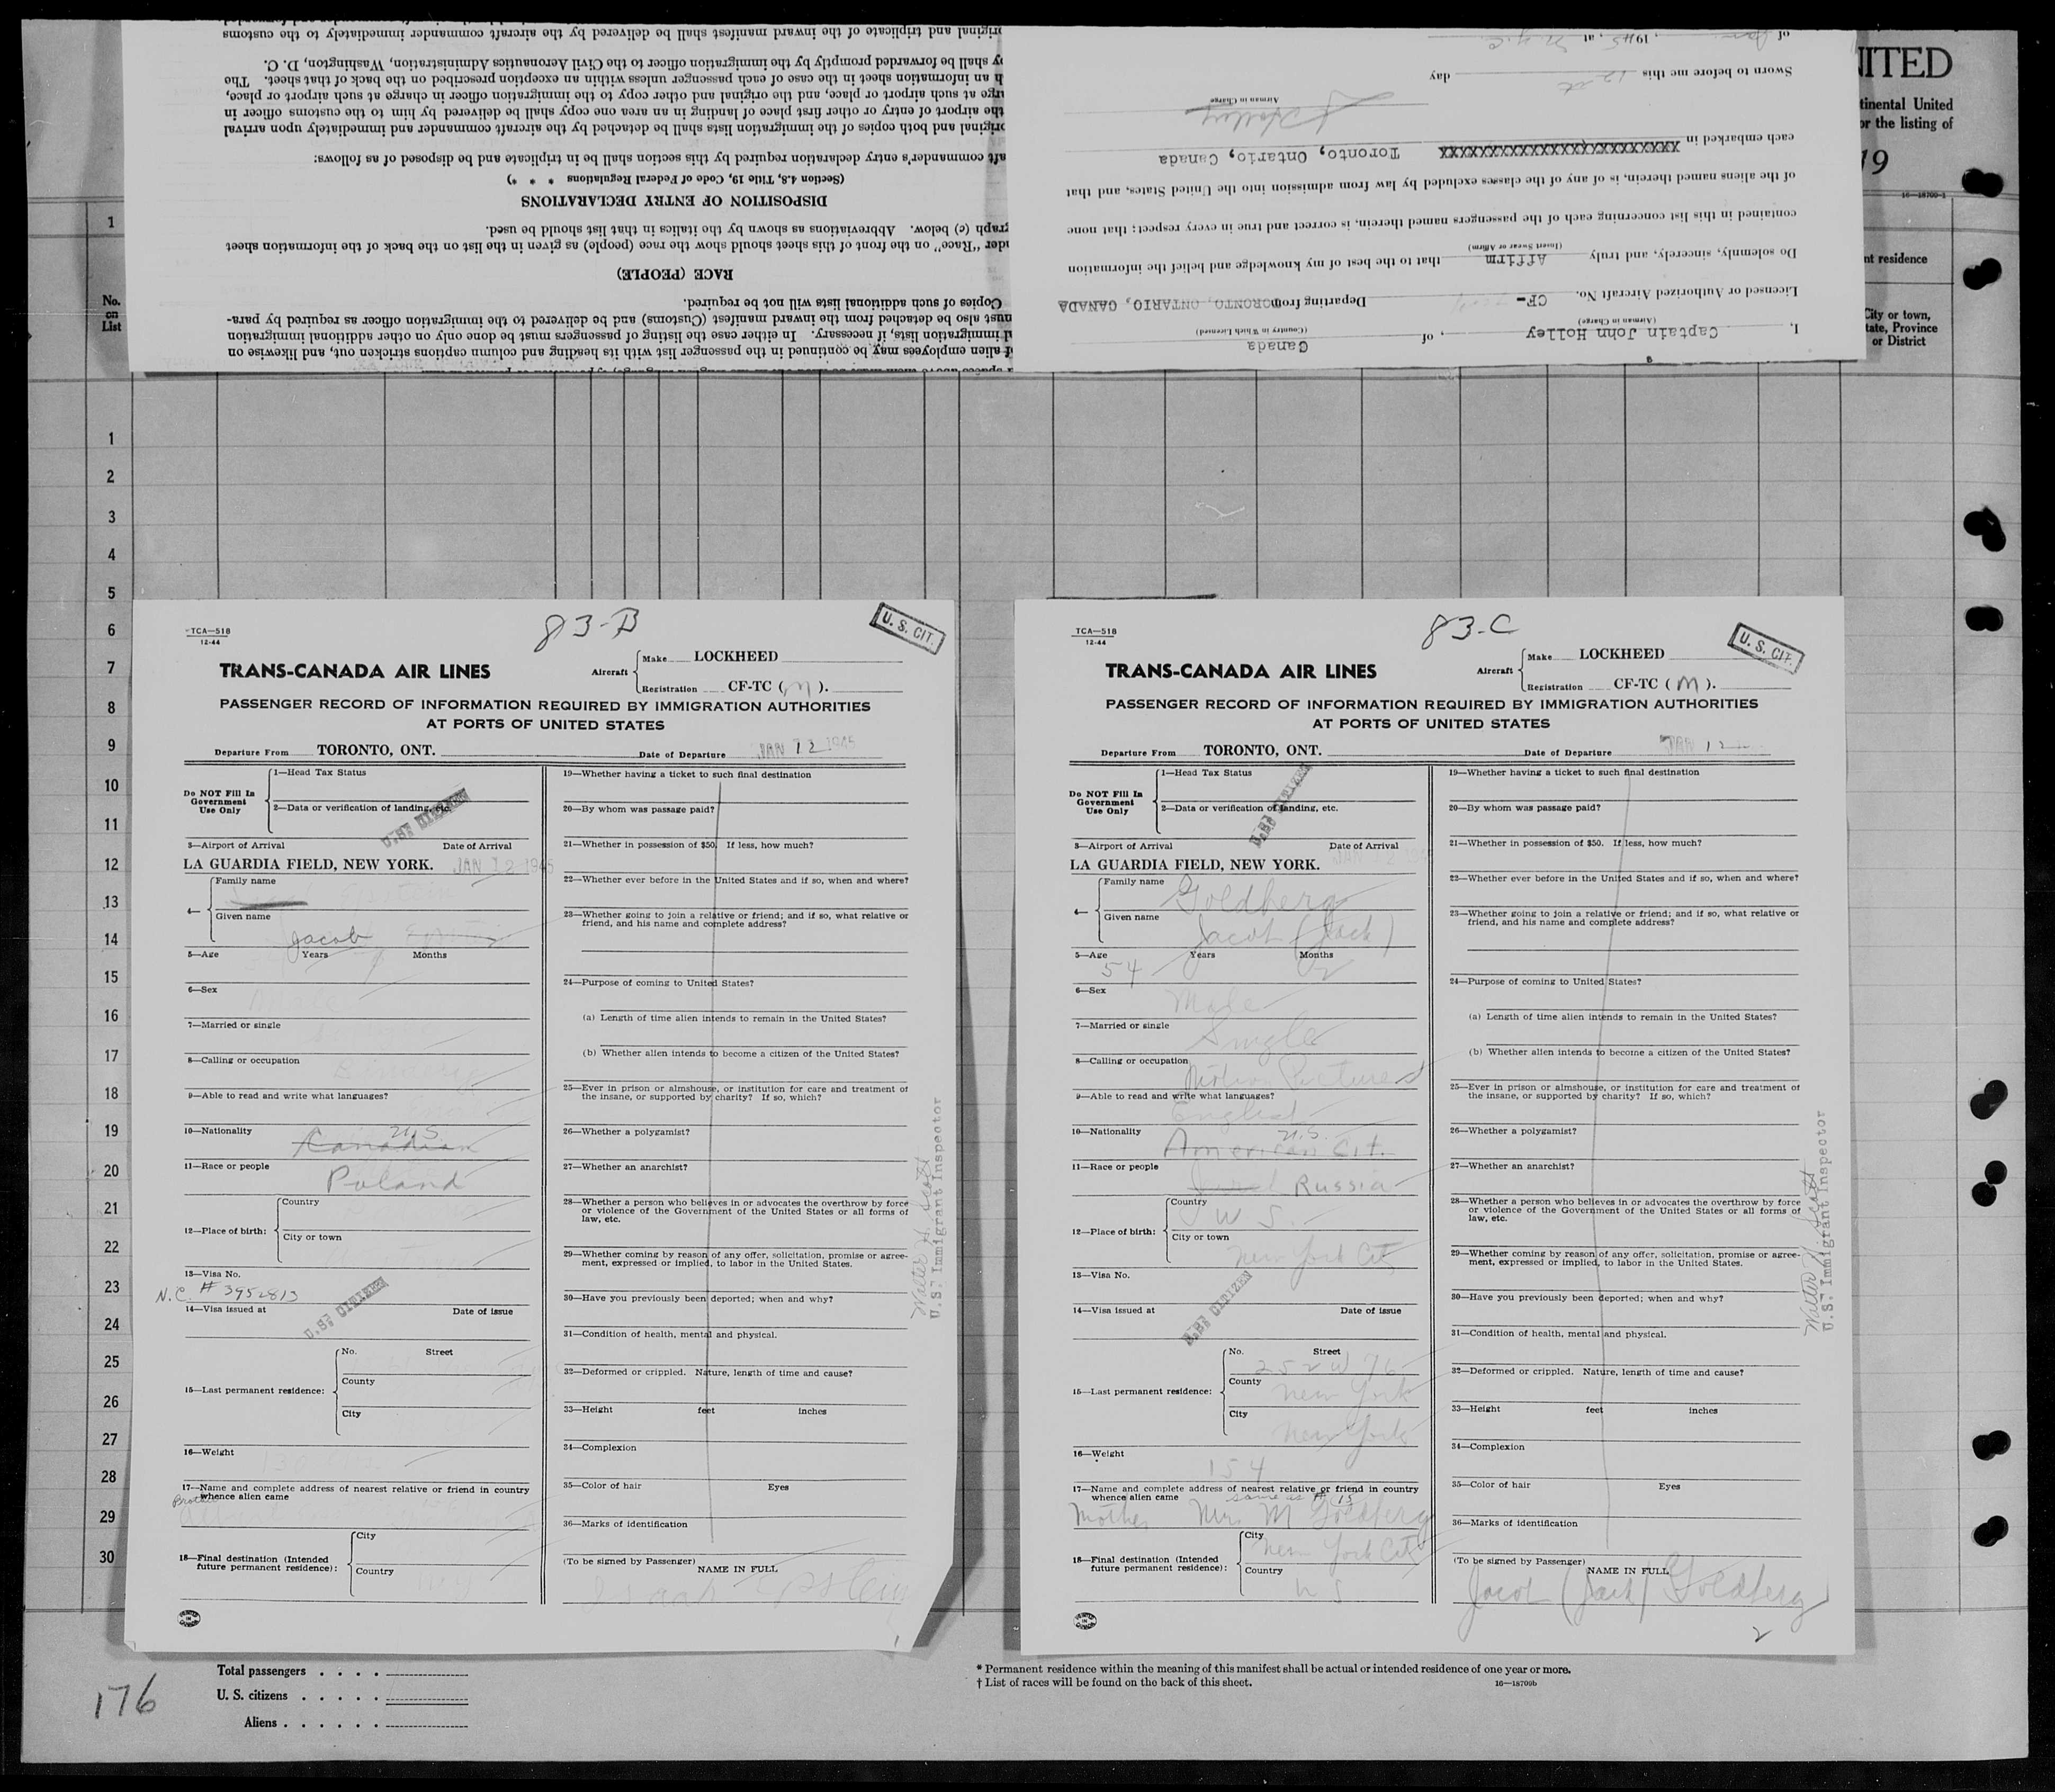 original and triplicate of the inward manifest shall be delivered by the aircraft commander immediately to the customs
shall be forwarded promptly by the immigration officer to the Civil Aeronautics Administration, Washington, D. C.
an information sheet in the case of each passenger unless within an exception prescribed on the back of that sheet. The
at such airport or place, and the original and other copy to the immigration officer in charge at such airport or place,
the airport of entry or other first place of landing in an area one copy shall be delivered by him to the customs officer in
original and both copies of the immigration lists shall be detached by the aircraft commander and immediately upon arrival
commander's entry declaration required by this section shall be in triplicate and be disposed of as follows:
(Section 4.8, Title 19, Code of Federal Regulations * * *)
DISPOSITION OF ENTRY DECLARATIONS
(c) below. Abbreviations as shown by the italics in that list should be used.
"Race" on the front of this sheet should show the race (people) as given in the list on the back of the information sheet
RACE (PEOPLE)
Copies of such additional lists will not be required.
must also be detached from the inward manifest (Customs) and be delivered to the immigration officer as required by para-
immigration lists, if necessary. In either case the listing of passengers must be done only on other additional immigration
of alien employees may be continued in the passenger list with its heading and column captions stricken out, and likewise on
I, Captain John Holley, of Canada
(Airman in Charge) (Country in Which Licensed)
Licensed or Authorized Aircraft No. CF- Departing from TORONTO, ONTARIO, CANADA
Do solemnly, sincerely, and truly Affirm that to the best of my knowledge and belief the information
(Insert Swear or Affirm)
contained in this list concerning each of the passengers named therein, is correct and true in every respect; that none
of the aliens named therein, is of any of the classes excluded by law from admission into the United States, and that
each embarked in XXXXXXXXXXXXXXXXXXXXXXXXX Toronto, Ontario, Canada
J Holley
Airman in Charge
Sworn to before me this 12 day
of Jan, 1945, at N.Y.C.
tinental United
or the listing of
19
16—18700-1
residence
City or town,
State, Province
or District
1
No.
on
List
1
2
3
4
5
6
7
8
9
10
11
12
13
14
15
16
17
18
19
20
21
22
23
24
25
26
27
28
29
30
TCA—518
12-44
83-B
U. S. CIT.
TRANS-CANADA AIR LINES
Aircraft
Make LOCKHEED
Registration CF-TC (M).
PASSENGER RECORD OF INFORMATION REQUIRED BY IMMIGRATION AUTHORITIES
AT PORTS OF UNITED STATES
Departure From TORONTO, ONT. Date of Departure JAN 12 1945
Do NOT Fill In
Government
Use Only
1—Head Tax Status
2—Data or verification of landing, etc.
U.S. CITIZEN
3—Airport of Arrival Date of Arrival
LA GUARDIA FIELD, NEW YORK. JAN 12 1945
4—
Family name
Given name
Jacob
5—Age Years Months
6—Sex
7—Married or single
8—Calling or occupation
9—Able to read and write what languages?
10—Nationality U.S
Canadian
11—Race or people
Poland
12—Place of birth:
Country
City or town
13—Visa No.
N.C. # 3952813
14—Visa issued at Date of issue
U.S. CITIZEN
15—Last permanent residence:
No. Street
County
City
16—Weight
17—Name and complete address of nearest relative or friend in country
whence alien came
Brother
18—Final destination (Intended
future permanent residence):
City
Country
19—Whether having a ticket to such final destination
20—By whom was passage paid?
21—Whether in possession of $50. If less, how much?
22—Whether ever before in the United States and if so, when and where?
23—Whether going to join a relative or friend; and if so, what relative or
friend, and his name and complete address?
24—Purpose of coming to United States?
(a) Length of time alien intends to remain in the United States?
(b) Whether alien intends to become a citizen of the United States?
25—Ever in prison or almshouse, or institution for care and treatment of
the insane, or supported by charity? If so, which?
26—Whether a polygamist?
27—Whether an anarchist?
28—Whether a person who believes in or advocates the overthrow by force
or violence of the Government of the United States or all forms of
law, etc.
29—Whether coming by reason of any offer, solicitation, promise or agree-
ment, expressed or implied, to labor in the United States.
30—Have you previously been deported; when and why?
31—Condition of health, mental and physical.
32—Deformed or crippled. Nature, length of time and cause?
33—Height feet inches
34—Complexion
35—Color of hair Eyes
36—Marks of identification
(To be signed by Passenger) NAME IN FULL
Epstein
1
Walter H. Scott
U.S. Immigrant Inspector
TCA—518
12-44
83-C
U. S. CIT.
TRANS-CANADA AIR LINES
Aircraft
Make LOCKHEED
Registration CF-TC (M).
PASSENGER RECORD OF INFORMATION REQUIRED BY IMMIGRATION AUTHORITIES
AT PORTS OF UNITED STATES
Departure From TORONTO, ONT. Date of Departure JAN 12
Do NOT Fill In
Government
Use Only
1—Head Tax Status
2—Data or verification of landing, etc.
U.S. CITIZEN
3—Airport of Arrival Date of Arrival
LA GUARDIA FIELD, NEW YORK. JAN 12 194
4—
Family name Goldberg
Given name Jacob (Jack)
5—Age 54 Years Months 2
6—Sex
Male
7—Married or single
Single
8—Calling or occupation
Motion Pictures
9—Able to read and write what languages?
English
10—Nationality U.S.
American Cit.
11—Race or people
Russia
12—Place of birth:
Country
U S.
City or town
New York City
13—Visa No.
14—Visa issued at Date of issue
U.S. CITIZEN
15—Last permanent residence:
No. Street
252 W 76
County
New York
City
New York
16—Weight
154
17—Name and complete address of nearest relative or friend in country
whence alien came same as # 15
Mother Mrs M Goldberg
18—Final destination (Intended
future permanent residence):
City
New York City
Country
U S
19—Whether having a ticket to such final destination
20—By whom was passage paid?
21—Whether in possession of $50. If less, how much?
22—Whether ever before in the United States and if so, when and where?
23—Whether going to join a relative or friend; and if so, what relative or
friend, and his name and complete address?
24—Purpose of coming to United States?
(a) Length of time alien intends to remain in the United States?
(b) Whether alien intends to become a citizen of the United States?
25—Ever in prison or almshouse, or institution for care and treatment of
the insane, or supported by charity? If so, which?
26—Whether a polygamist?
27—Whether an anarchist?
28—Whether a person who believes in or advocates the overthrow by force
or violence of the Government of the United States or all forms of
law, etc.
29—Whether coming by reason of any offer, solicitation, promise or agree-
ment, expressed or implied, to labor in the United States.
30—Have you previously been deported; when and why?
31—Condition of health, mental and physical.
32—Deformed or crippled. Nature, length of time and cause?
33—Height feet inches
34—Complexion
35—Color of hair Eyes
36—Marks of identification
(To be signed by Passenger) NAME IN FULL
Jacob (Jack) Goldberg
2
Walter H. Scott
U.S. Immigrant Inspector
176
Total passengers . . . .
U. S. citizens . . . . .
Aliens . . . . . .
* Permanent residence within the meaning of this manifest shall be actual or intended residence of one year or more.
† List of races will be found on the back of this sheet. 16—18709b